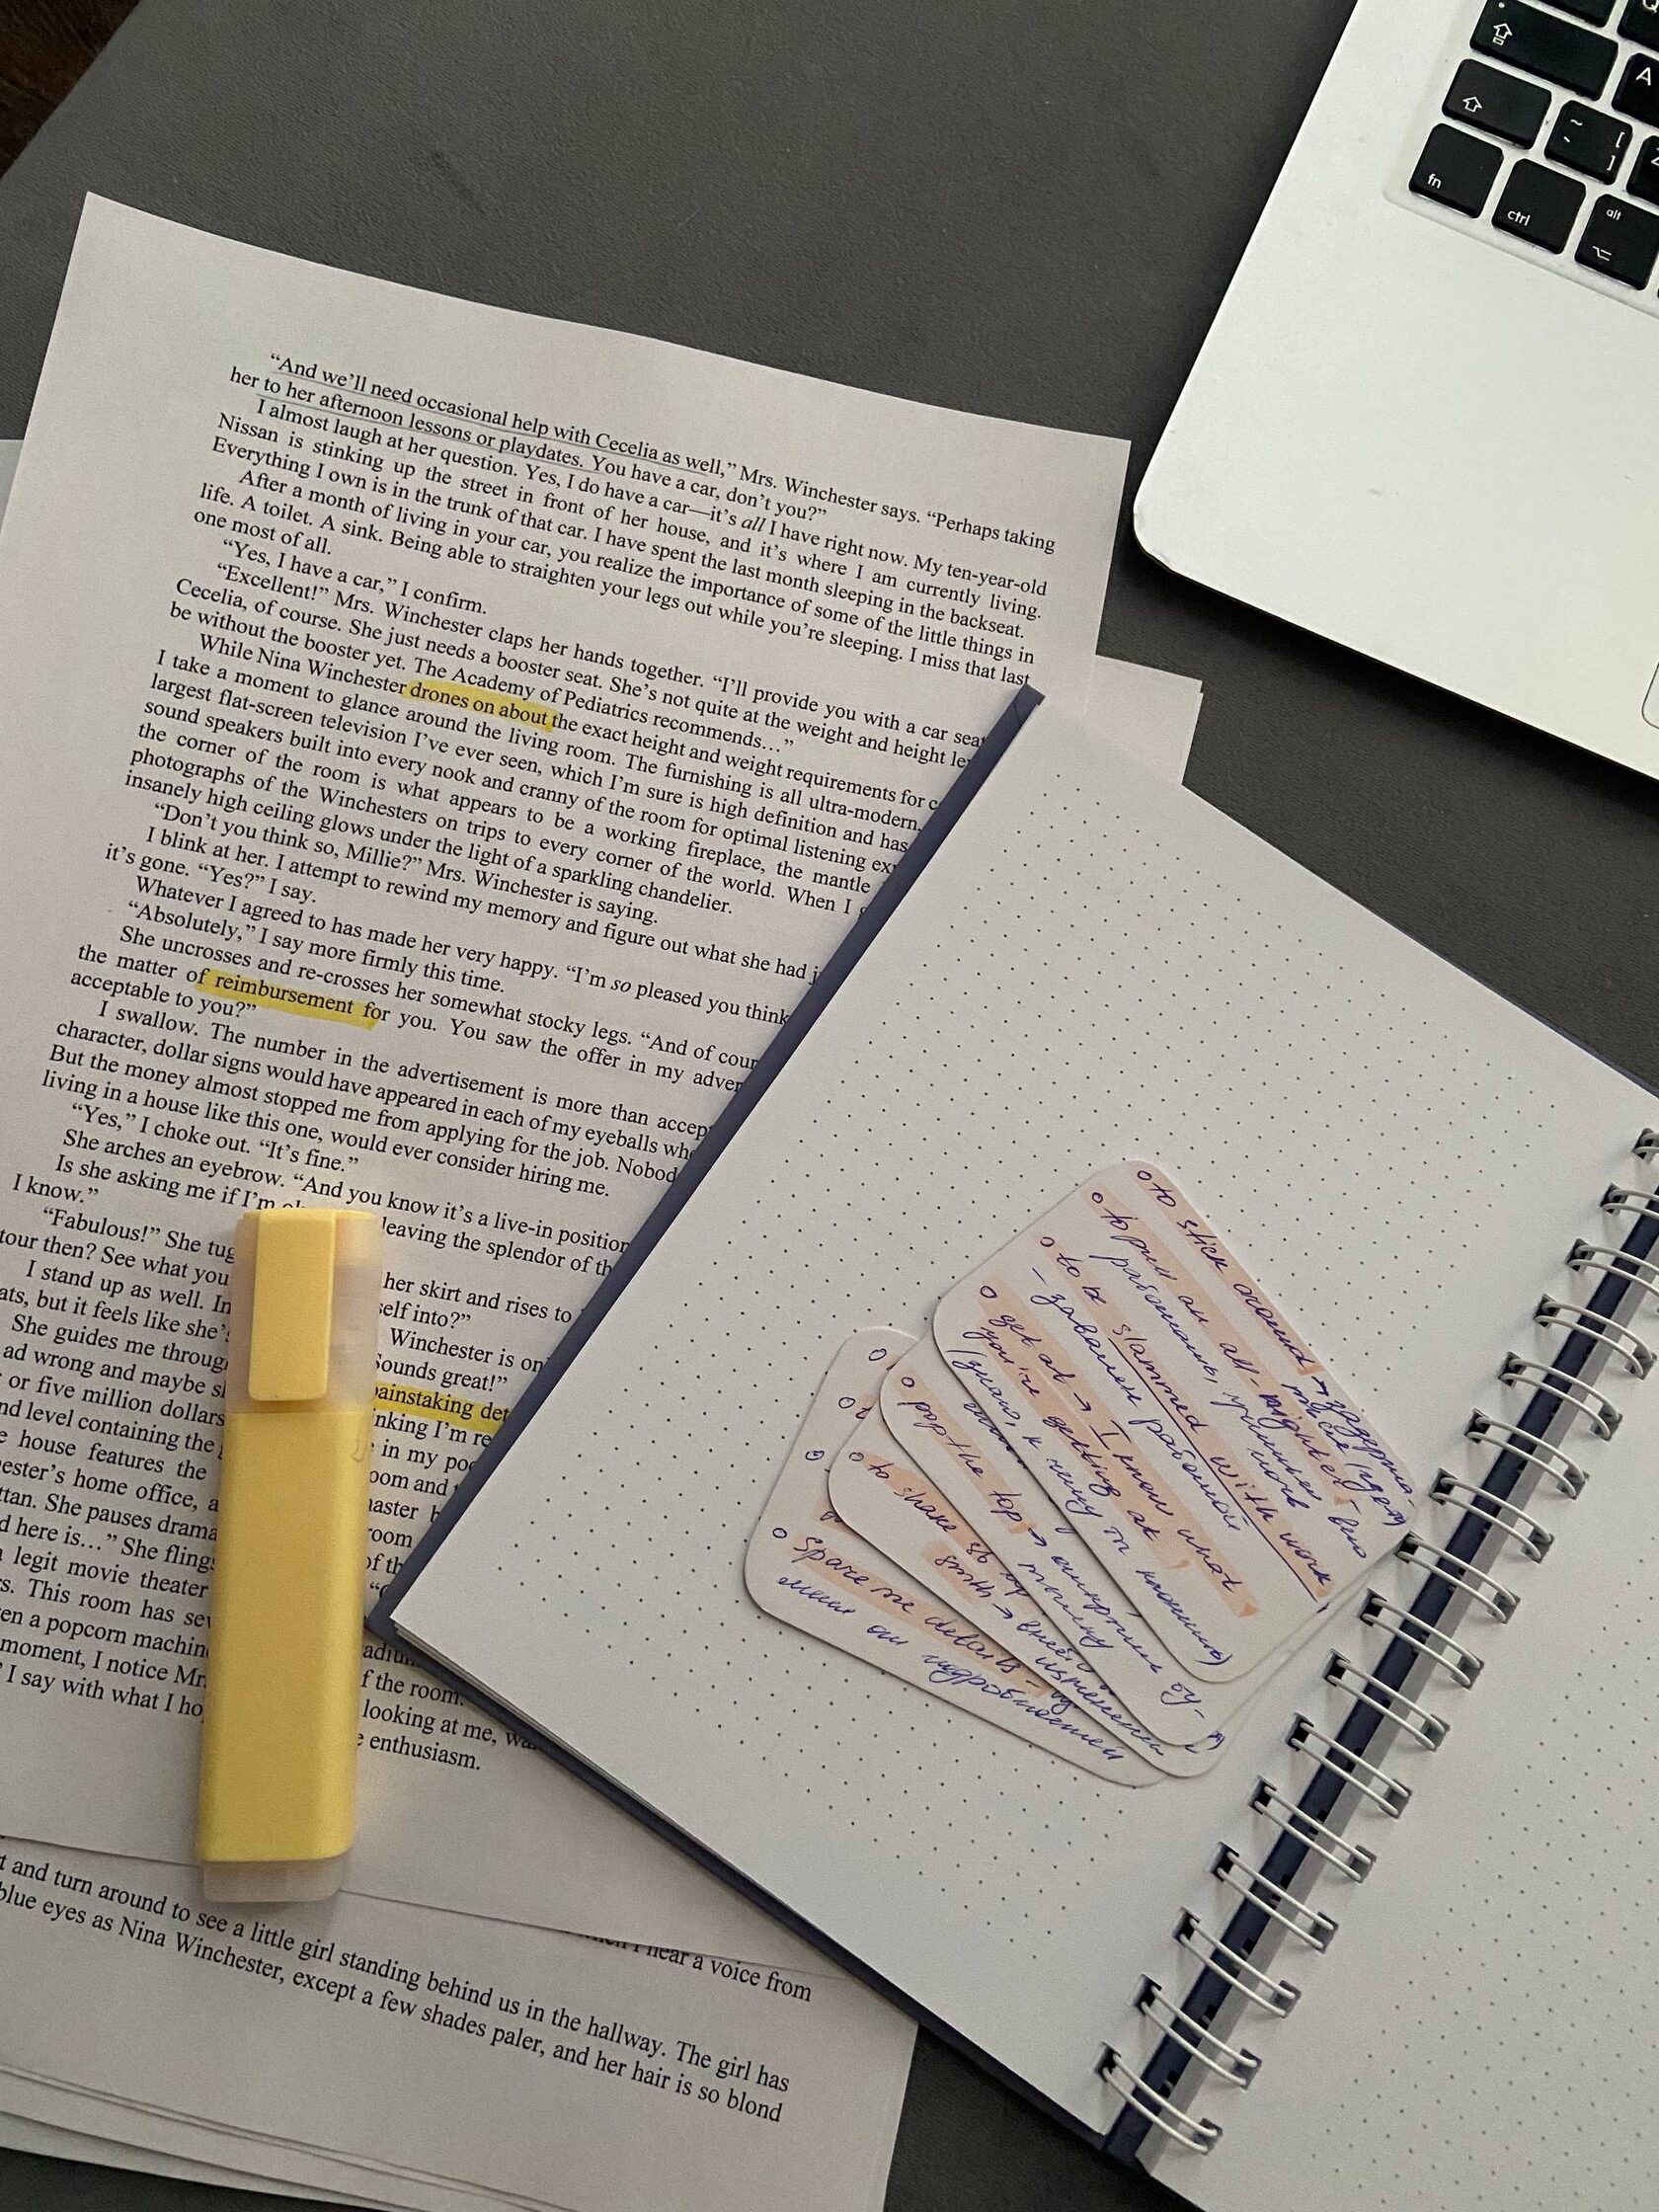 “And we’ll need occasional help with Cecelia as well,” Mrs. Winchester says. “Perhaps taking
her to her afternoon lessons or playdates. You have a car, don’t you?”
I almost laugh at her question. Yes, I do have a car—it’s all I have right now. My ten-year-old
Nissan is stinking up the street in front of her house, and it’s where I am currently living.
Everything I own is in the trunk of that car. I have spent the last month sleeping in the backseat.
After a month of living in your car, you realize the importance of some of the little things in
life. A toilet. A sink. Being able to straighten your legs out while you’re sleeping. I miss that last
one most of all.
“Yes, I have a car,” I confirm.
“Excellent!” Mrs. Winchester claps her hands together. “I’ll provide you with a car seat
Cecelia, of course. She just needs a booster seat. She’s not quite at the weight and height le
be without the booster yet. The Academy of Pediatrics recommends…”
While Nina Winchester drones on about the exact height and weight requirements for c
I take a moment to glance around the living room. The furnishing is all ultra-modern,
largest flat-screen television I’ve ever seen, which I’m sure is high definition and has
sound speakers built into every nook and cranny of the room for optimal listening ex
the corner of the room is what appears to be a working fireplace, the mantle
photographs of the Winchesters on trips to every corner of the world. When I
insanely high ceiling glows under the light of a sparkling chandelier.
“Don’t you think so, Millie?” Mrs. Winchester is saying.
I blink at her. I attempt to rewind my memory and figure out what she had j
it’s gone. “Yes?” I say.
Whatever I agreed to has made her very happy. “I’m so pleased you think
“Absolutely,” I say more firmly this time.
She uncrosses and re-crosses her somewhat stocky legs. “And of cour
the matter of reimbursement for you. You saw the offer in my adver
acceptable to you?”
I swallow. The number in the advertisement is more than accep
character, dollar signs would have appeared in each of my eyeballs whe
But the money almost stopped me from applying for the job. Nobod
living in a house like this one, would ever consider hiring me.
“Yes,” I choke out. “It’s fine.”
She arches an eyebrow. “And you know it’s a live-in position
Is she asking me if I’m leaving the splendor of th
I know.”
“Fabulous!” She tug her skirt and rises to
tour then? See what you self into?”
I stand up as well. In Winchester is on
ats, but it feels like she’s Sounds great!”
She guides me throug painstaking det
ad wrong and maybe sh nking I’m re
or five million dollars in my poc
nd level containing the oom and
e house features the master b
ester’s home office, a room
ttan. She pauses drama of th
d here is…” She flings
legit movie theater
s. This room has se
en a popcorn machin f the room.
moment, I notice Mr. looking at me, wa
I say with what I ho e enthusiasm.
when I hear a voice from
t and turn around to see a little girl standing behind us in the hallway. The girl has
blue eyes as Nina Winchester, except a few shades paper, and her hair is so blond
to stick around →
to pull an all-nighter -
работать,
to be slammed with work
- завален работой
get at → I know what
you’re getting at
(знаю, к чему ты клонишь)
pop the top →
to shake up
smth →
spare me details -
меня от подробностей
fn
ctrl
alt
A